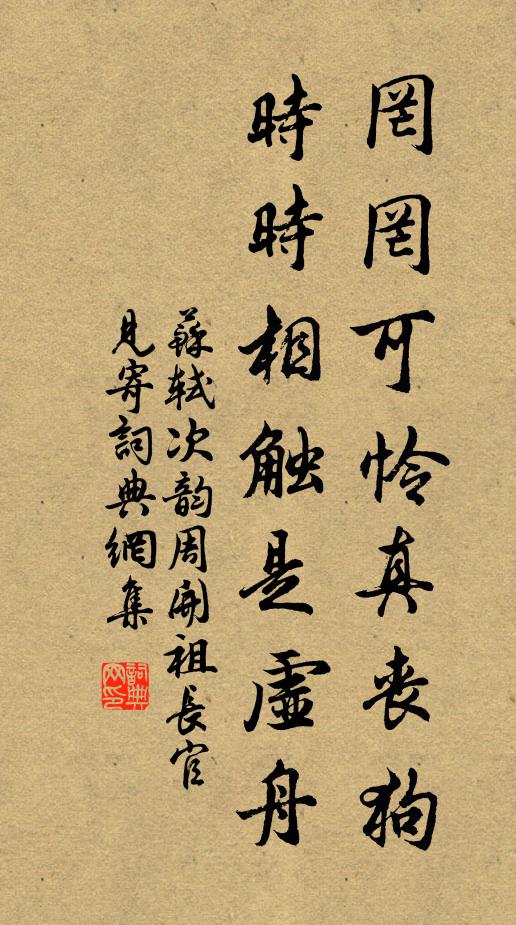 罔罔可怜真丧狗
時時相触是虛舟
蘇軾次韵周開祖長官
見寄詞典網集
詞典网印